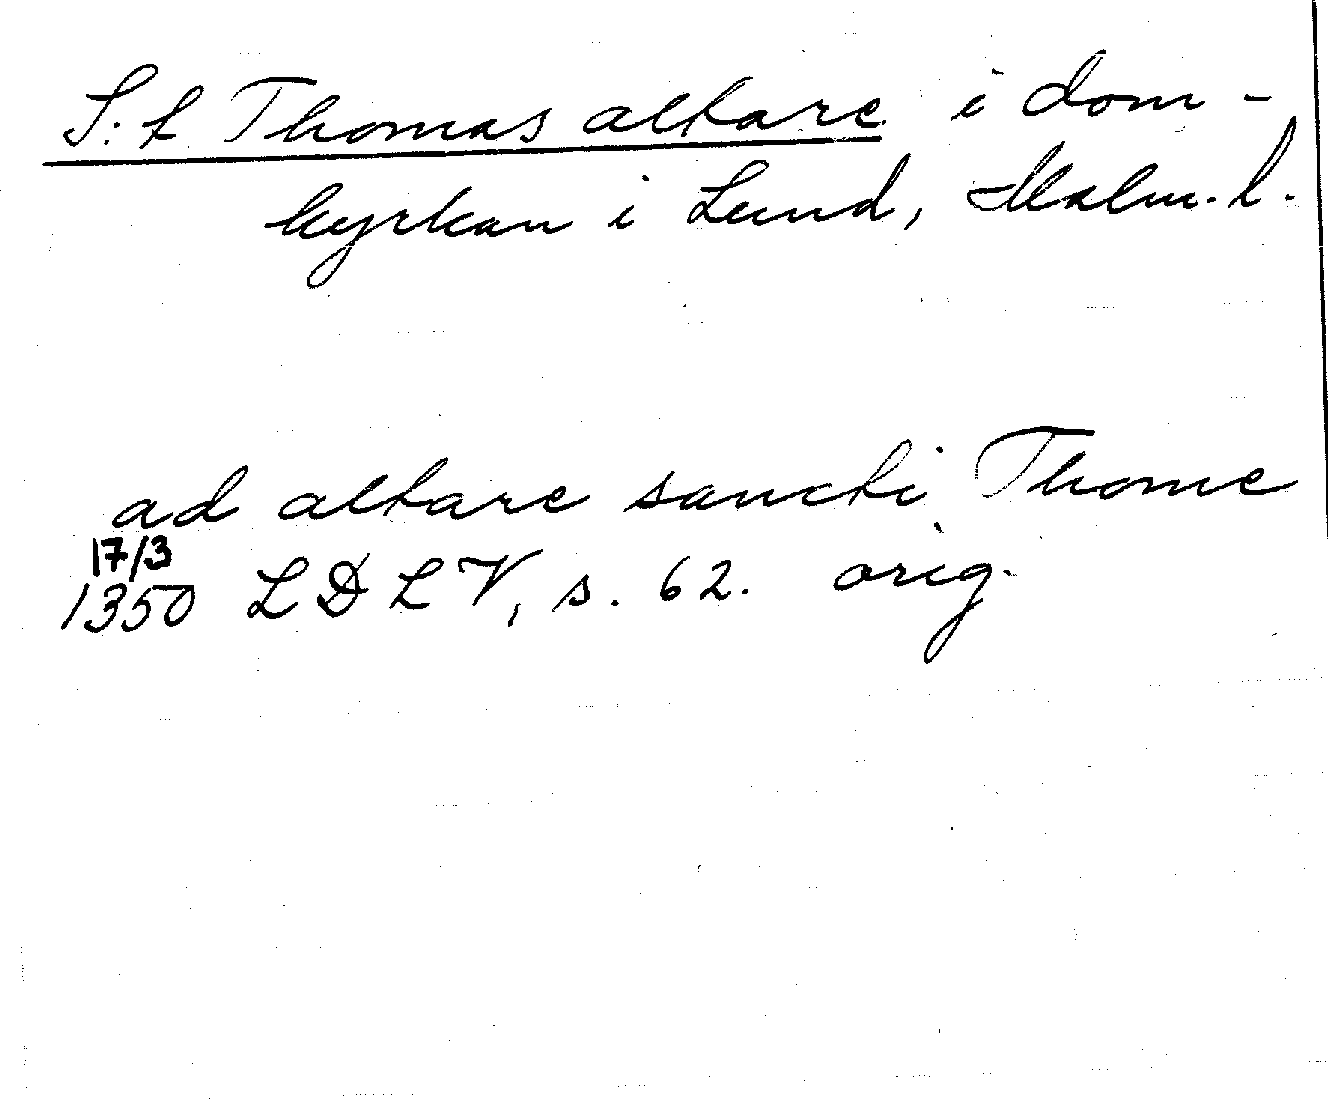 S:t Thomas altare i dom-
kyrkan i Lund, Malm. l.
ad altare sancti Thome
17/3
1350 LDLV, s. 62. orig.